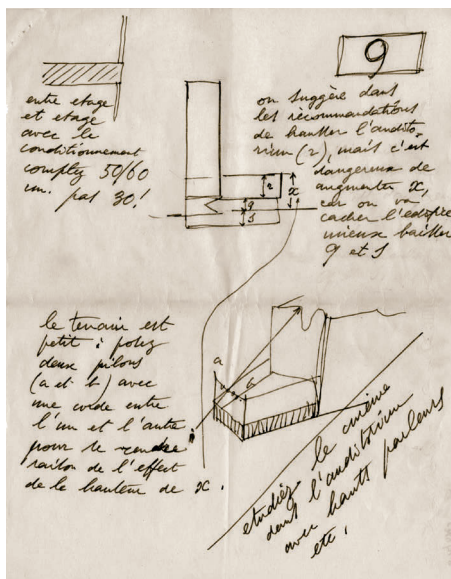 9
entre etage
et etage
avec le
conditionnement
comptez 50/60
cm. pas 30!
on suggère dans
les recommandations
de hausser l'audito-
rium (r), mais c'est
dangereux de
augmenter x,
car on va
cacher l'edifice
mieux baisser
q et s
r
x
q
s
le terrain est
petit : posez
deux pilons
(a et b) avec
une corde entre
l'un et l'autre
pour se rendre
raison de l'effet
de la hauteur de x.
a
b
etudiez le cinéma
dans l'auditorium
avec hauts parleurs
etc.